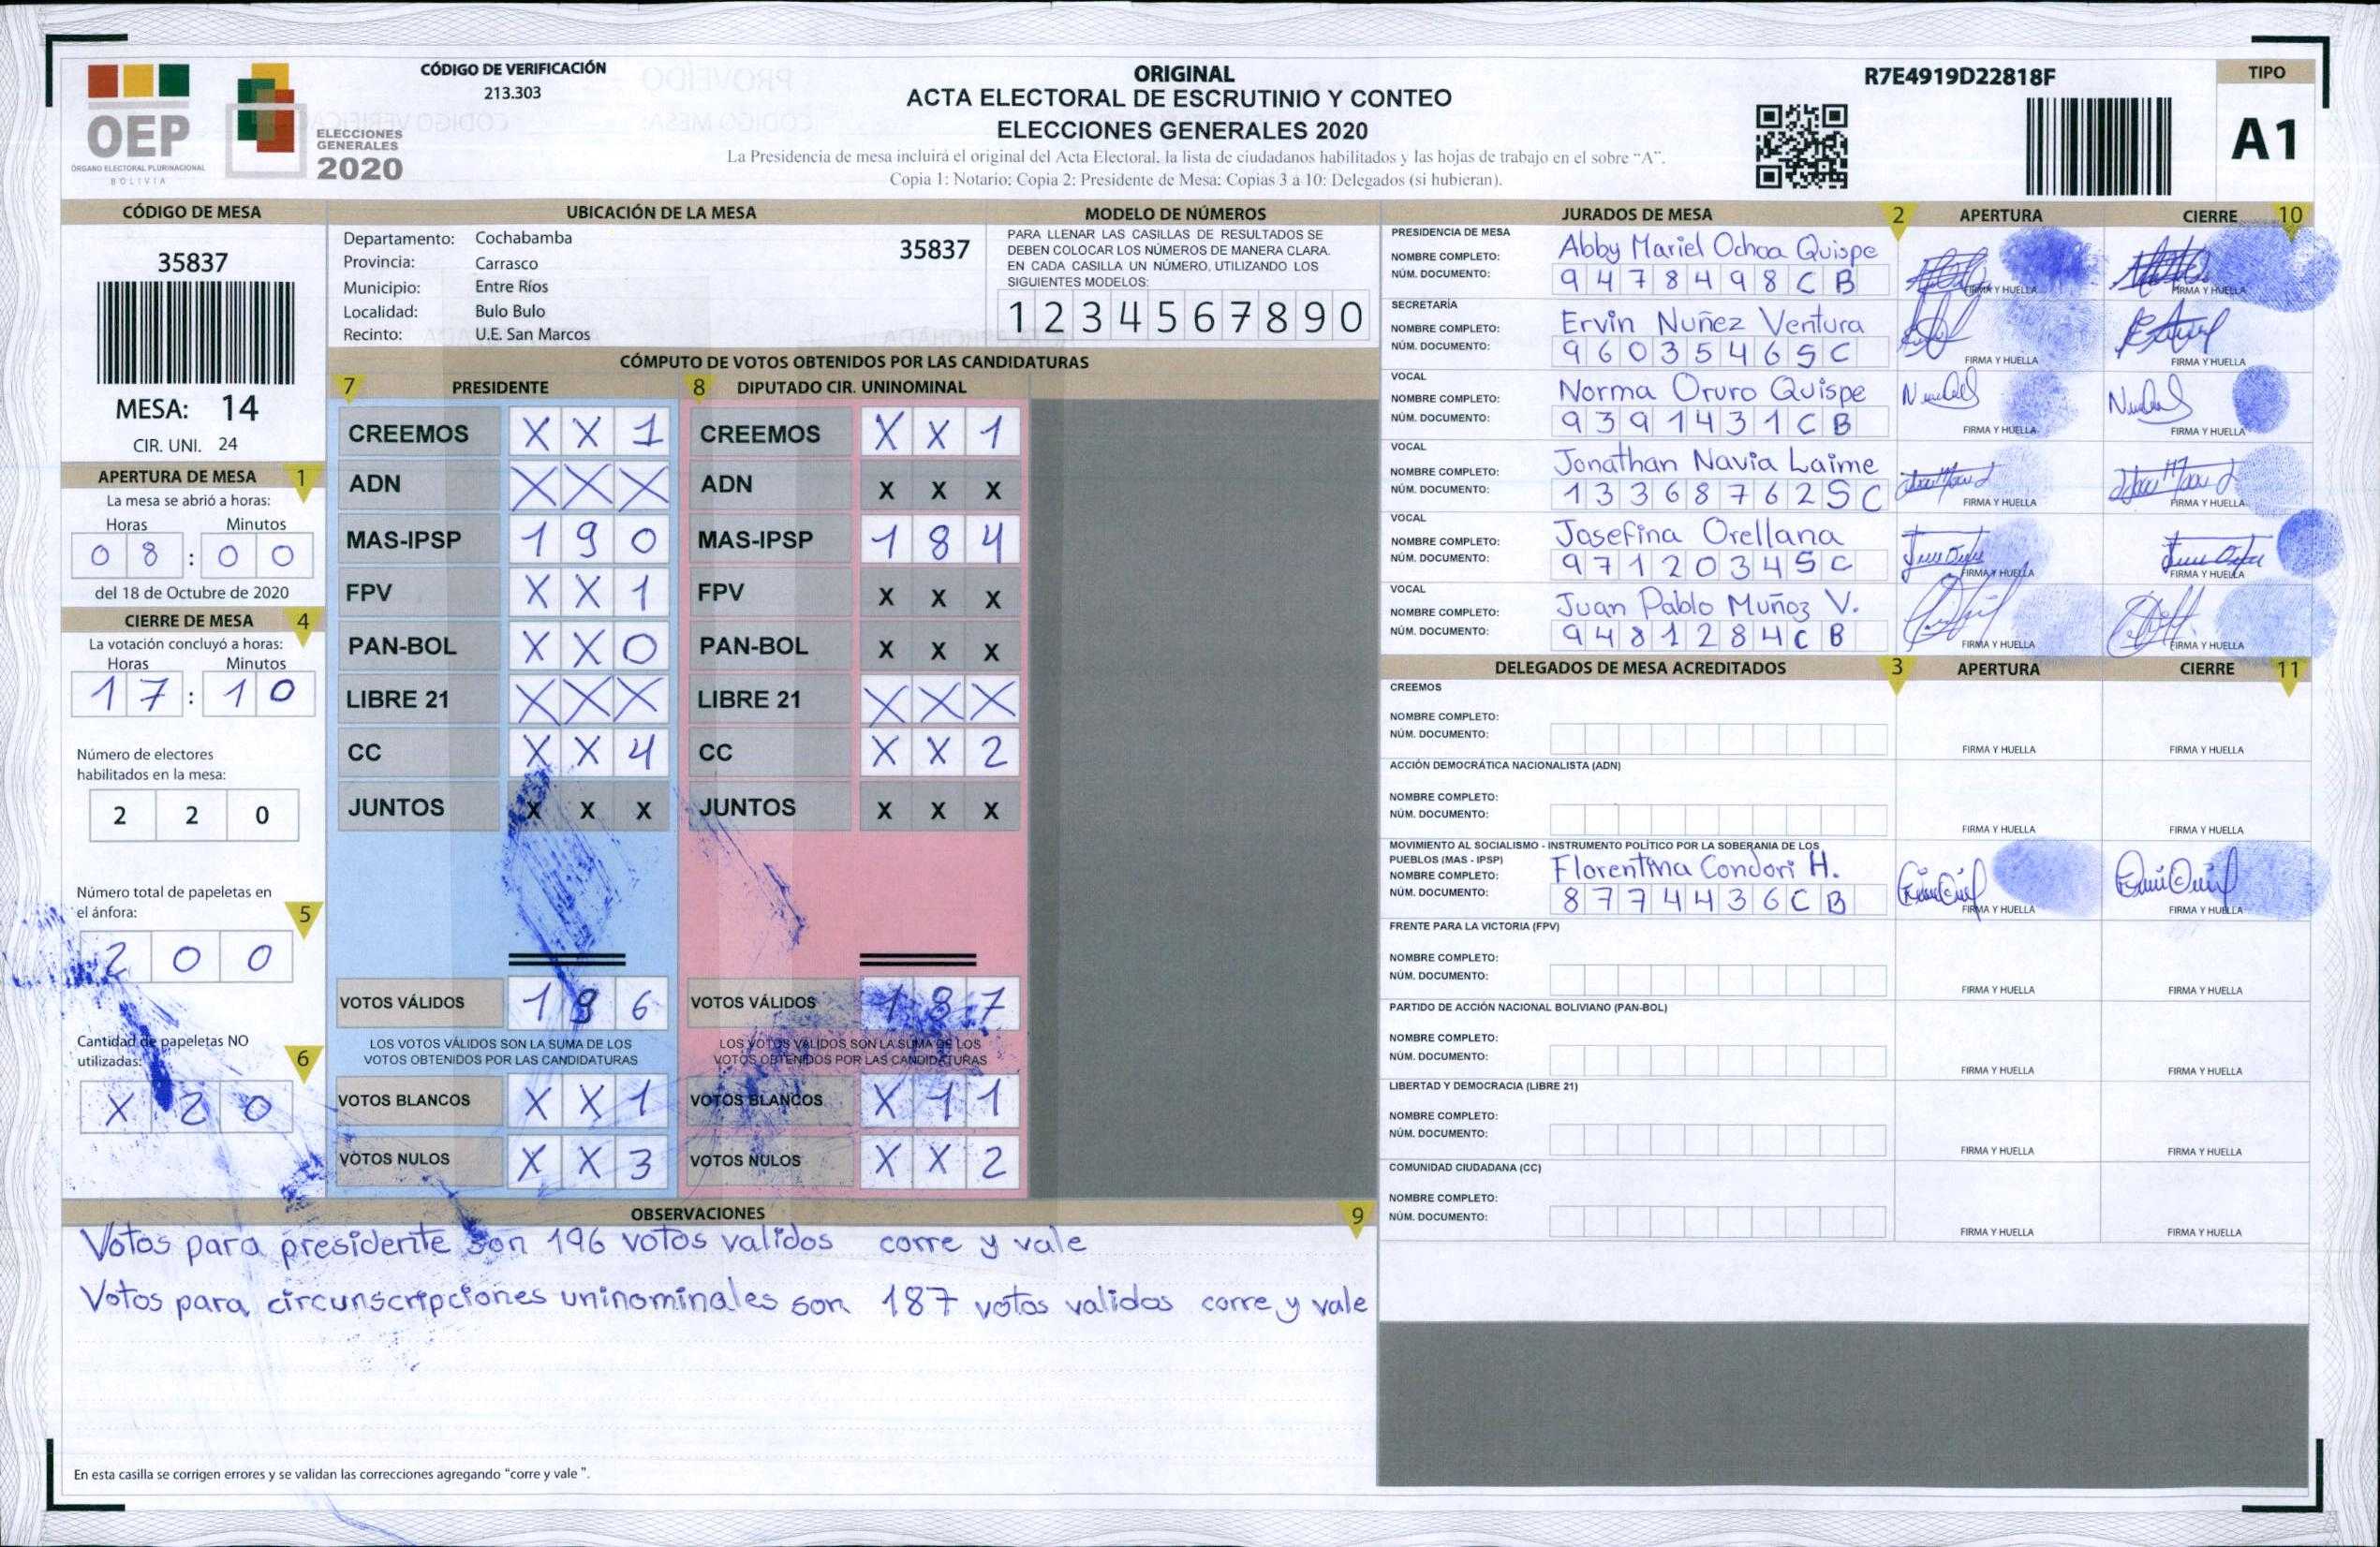 OEP
ÓRGANO ELECTORAL PLURINACIONAL
BOLIVIA
ELECCIONES
GENERALES
2020
CÓDIGO DE VERIFICACIÓN
213.303
ORIGINAL
ACTA ELECTORAL DE ESCRUTINIO Y CONTEO
ELECCIONES GENERALES 2020
La Presidencia de mesa incluirá el original del Acta Electoral, la lista de ciudadanos habilitados y las hojas de trabajo en el sobre "A".
Copia 1: Notario; Copia 2: Presidente de Mesa; Copias 3 a 10: Delegados (si hubieran).
R7E4919D22818F
TIPO
A1
CÓDIGO DE MESA
35837
MESA: 14
CIR. UNI. 24
APERTURA DE MESA 1
La mesa se abrió a horas:
Horas Minutos
0 8 : 0 0
del 18 de Octubre de 2020
CIERRE DE MESA 4
La votación concluyó a horas:
Horas Minutos
1 7 : 1 0
Número de electores
habilitados en la mesa:
2 2 0
Número total de papeletas en
el ánfora: 5
2 0 0
Cantidad de papeletas NO
utilizadas: 6
X 2 0
UBICACIÓN DE LA MESA
Departamento: Cochabamba 35837
Provincia: Carrasco
Municipio: Entre Ríos
Localidad: Bulo Bulo
Recinto: U.E. San Marcos
MODELO DE NÚMEROS
PARA LLENAR LAS CASILLAS DE RESULTADOS SE
DEBEN COLOCAR LOS NÚMEROS DE MANERA CLARA.
EN CADA CASILLA UN NÚMERO, UTILIZANDO LOS
SIGUIENTES MODELOS:
1 2 3 4 5 6 7 8 9 0
CÓMPUTO DE VOTOS OBTENIDOS POR LAS CANDIDATURAS
7 PRESIDENTE 8 DIPUTADO CIR. UNINOMINAL
CREEMOS X X 1 CREEMOS X X 1
ADN X X X ADN X X X
MAS-IPSP 1 9 0 MAS-IPSP 1 8 4
FPV X X 1 FPV X X X
PAN-BOL X X 0 PAN-BOL X X X
LIBRE 21 X X X LIBRE 21 X X X
CC X X 4 CC X X 2
JUNTOS X X X JUNTOS X X X
VOTOS VÁLIDOS 1 9 6 VOTOS VÁLIDOS 1 8 7
LOS VOTOS VÁLIDOS SON LA SUMA DE LOS LOS VOTOS VÁLIDOS SON LA SUMA DE LOS
VOTOS OBTENIDOS POR LAS CANDIDATURAS VOTOS OBTENIDOS POR LAS CANDIDATURAS
VOTOS BLANCOS X X 1 VOTOS BLANCOS X 1 1
VOTOS NULOS X X 3 VOTOS NULOS X X 2
OBSERVACIONES 9
Votos para presidente son 196 votos validos corre y vale
Votos para circunscripciones uninominales son 187 votos validos corre y vale
En esta casilla se corrigen errores y se validan las correcciones agregando "corre y vale".
JURADOS DE MESA 2 APERTURA CIERRE 10
PRESIDENCIA DE MESA
NOMBRE COMPLETO: Abby Mariel Ochoa Quispe
NÚM. DOCUMENTO: 9 4 7 8 4 9 8 C B
FIRMA Y HUELLA FIRMA Y HUELLA
SECRETARÍA
NOMBRE COMPLETO: Ervin Nuñez Ventura
NÚM. DOCUMENTO: 9 6 0 3 5 4 6 S C
FIRMA Y HUELLA FIRMA Y HUELLA
VOCAL
NOMBRE COMPLETO: Norma Oruro Quispe
NÚM. DOCUMENTO: 9 3 9 1 4 3 1 C B
FIRMA Y HUELLA FIRMA Y HUELLA
VOCAL
NOMBRE COMPLETO: Jonathan Navia Laime
NÚM. DOCUMENTO: 1 3 3 6 8 7 6 2 S C
FIRMA Y HUELLA FIRMA Y HUELLA
VOCAL
NOMBRE COMPLETO: Josefina Orellana
NÚM. DOCUMENTO: 9 7 1 2 0 3 4 S C
FIRMA Y HUELLA FIRMA Y HUELLA
VOCAL
NOMBRE COMPLETO: Juan Pablo Muñoz V.
NÚM. DOCUMENTO: 9 4 8 1 2 8 4 C B
FIRMA Y HUELLA FIRMA Y HUELLA
DELEGADOS DE MESA ACREDITADOS 3 APERTURA CIERRE 11
CREEMOS
NOMBRE COMPLETO:
NÚM. DOCUMENTO:
FIRMA Y HUELLA FIRMA Y HUELLA
ACCIÓN DEMOCRÁTICA NACIONALISTA (ADN)
NOMBRE COMPLETO:
NÚM. DOCUMENTO:
FIRMA Y HUELLA FIRMA Y HUELLA
MOVIMIENTO AL SOCIALISMO - INSTRUMENTO POLÍTICO POR LA SOBERANIA DE LOS
PUEBLOS (MAS - IPSP)
NOMBRE COMPLETO: Florentina Condori H.
NÚM. DOCUMENTO: 8 7 7 4 4 3 6 C B
FIRMA Y HUELLA FIRMA Y HUELLA
FRENTE PARA LA VICTORIA (FPV)
NOMBRE COMPLETO:
NÚM. DOCUMENTO:
FIRMA Y HUELLA FIRMA Y HUELLA
PARTIDO DE ACCIÓN NACIONAL BOLIVIANO (PAN-BOL)
NOMBRE COMPLETO:
NÚM. DOCUMENTO:
FIRMA Y HUELLA FIRMA Y HUELLA
LIBERTAD Y DEMOCRACIA (LIBRE 21)
NOMBRE COMPLETO:
NÚM. DOCUMENTO:
FIRMA Y HUELLA FIRMA Y HUELLA
COMUNIDAD CIUDADANA (CC)
NOMBRE COMPLETO:
NÚM. DOCUMENTO:
FIRMA Y HUELLA FIRMA Y HUELLA